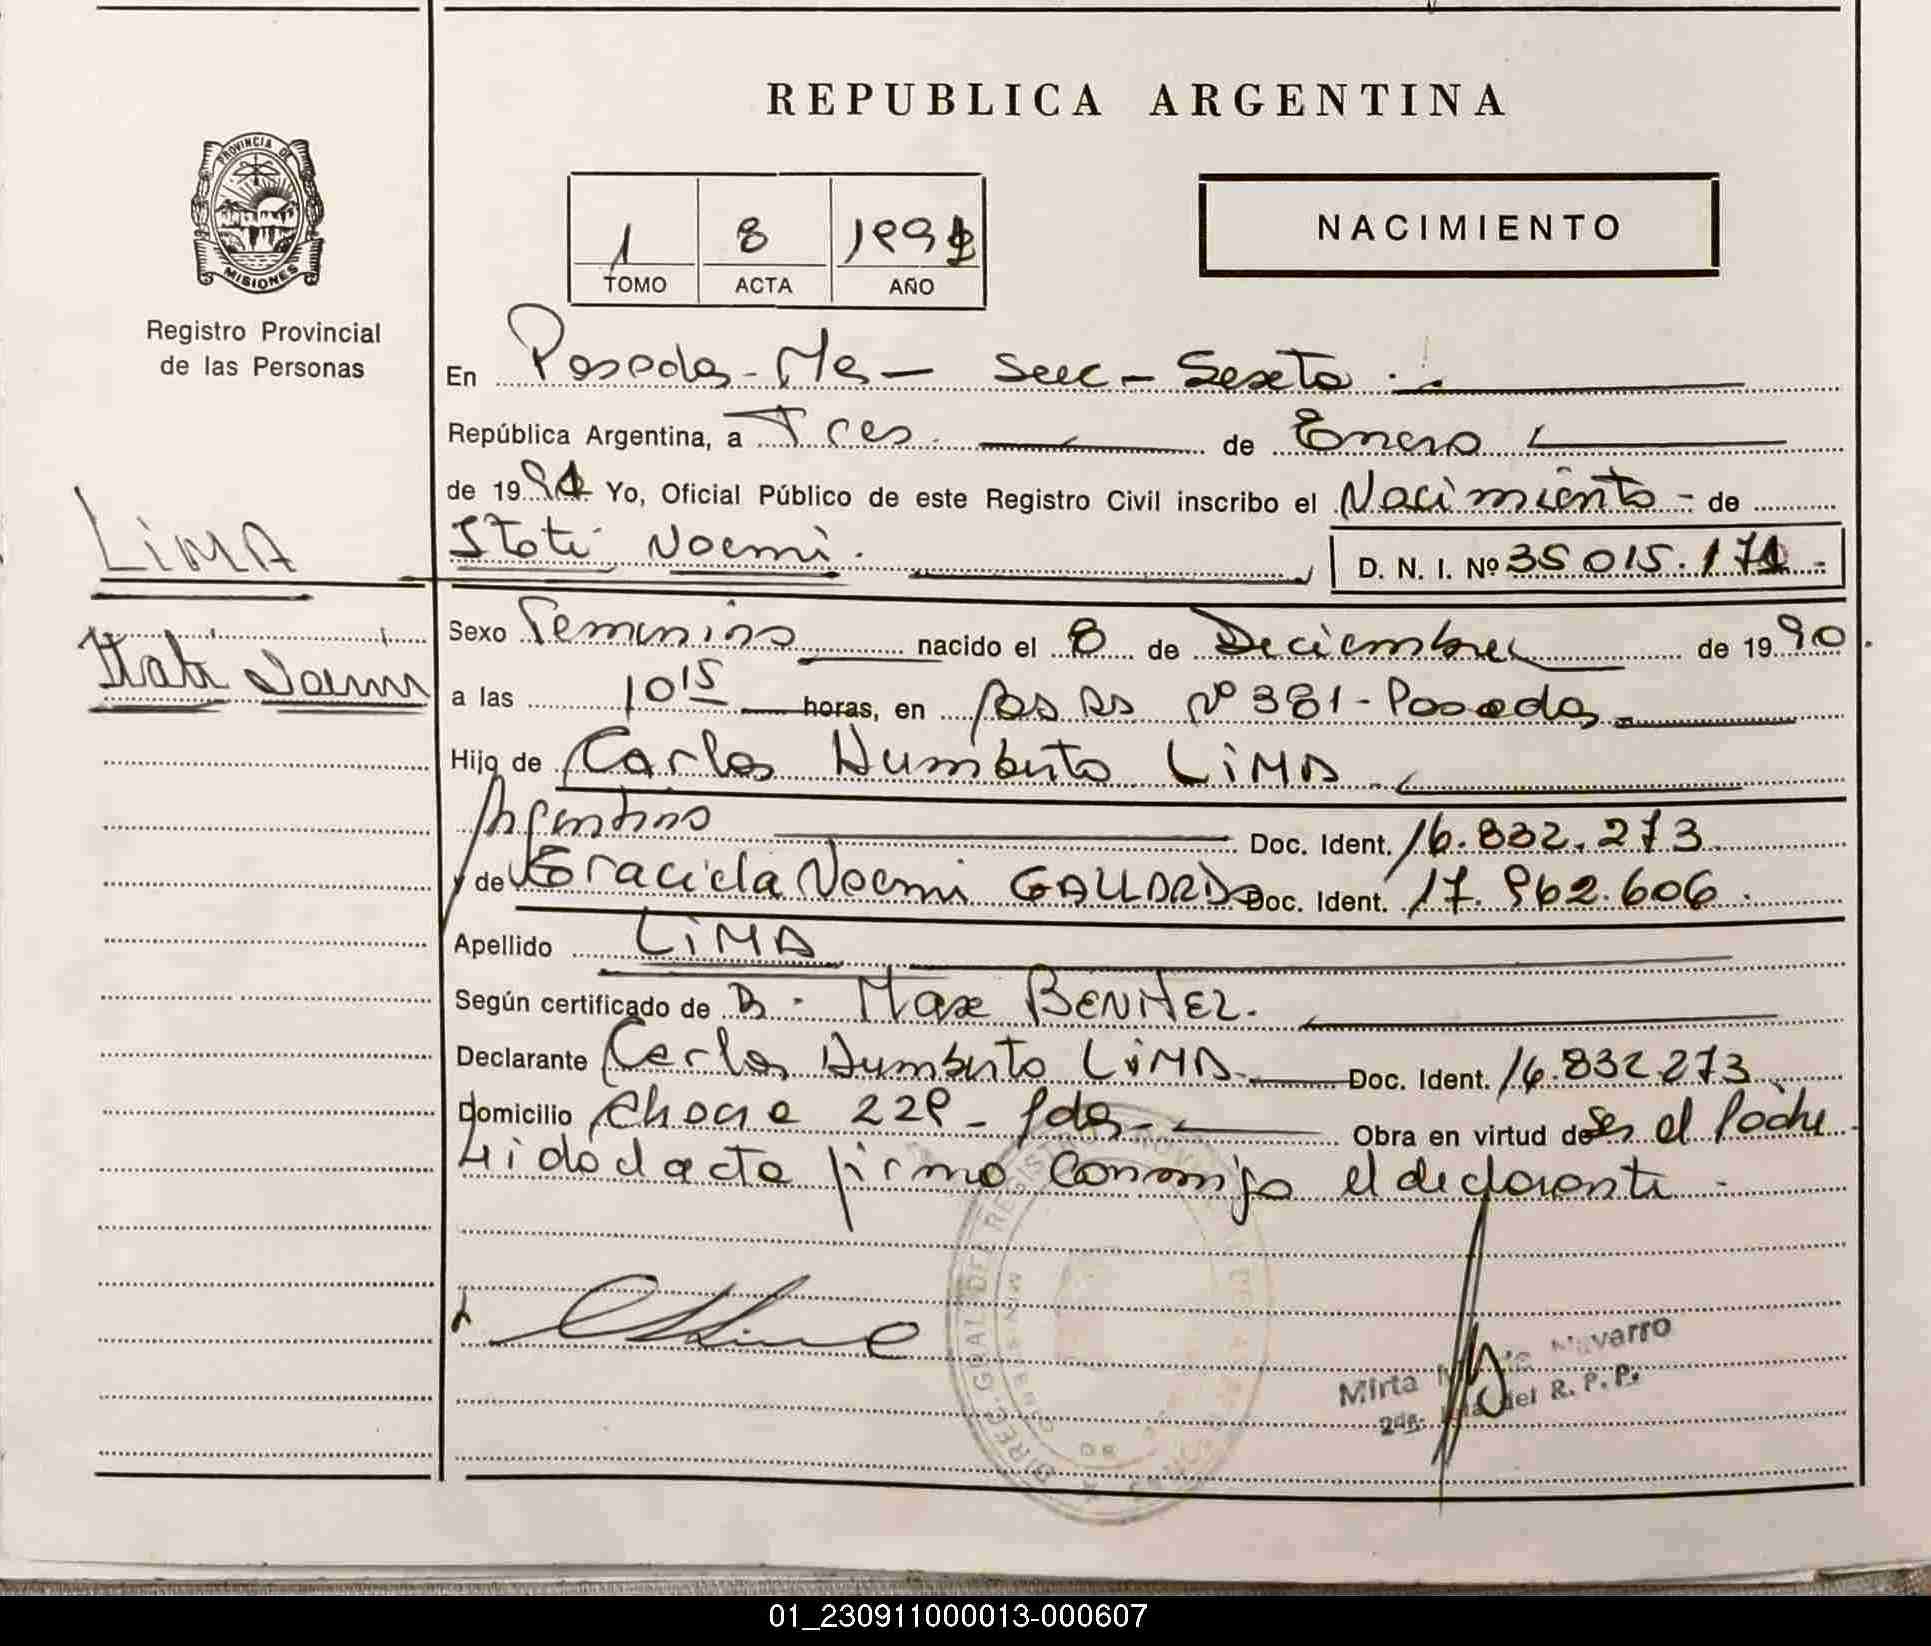 REPUBLICA ARGENTINA
PROVINCIA DE
MISIONES
Registro Provincial
de las Personas
1 8 1991
TOMO ACTA AÑO
NACIMIENTO
En Posadas - Ms - Secc - Sexta
República Argentina, a Tres de Enero
de 1991 Yo, Oficial Público de este Registro Civil inscribo el Nacimiento - de
LIMA
Itati Noemi. D. N. I. Nº 35 015.171 -
Itati Noemi
Sexo Femenino nacido el 8 de Deciembre de 1990.
a las 10 15 horas, en Nº 381 - Posadas
Hijo de Carlos Humberto LIMA
Argentino Doc. Ident. 16.832.273
y de Graciela Noemi GALLARDO Doc. Ident. 17.962.606.
Apellido LIMA
Según certificado de Max BENITEZ.
Declarante Carlos Humberto LIMA Doc. Ident. 16.832 273
Domicilio 229 - Pdas - Obra en virtud de Ser el Padre
Leido el acta firmo conmigo el declarante -
Mirta Navarro
del R. P. P.
01_230911000013-000607